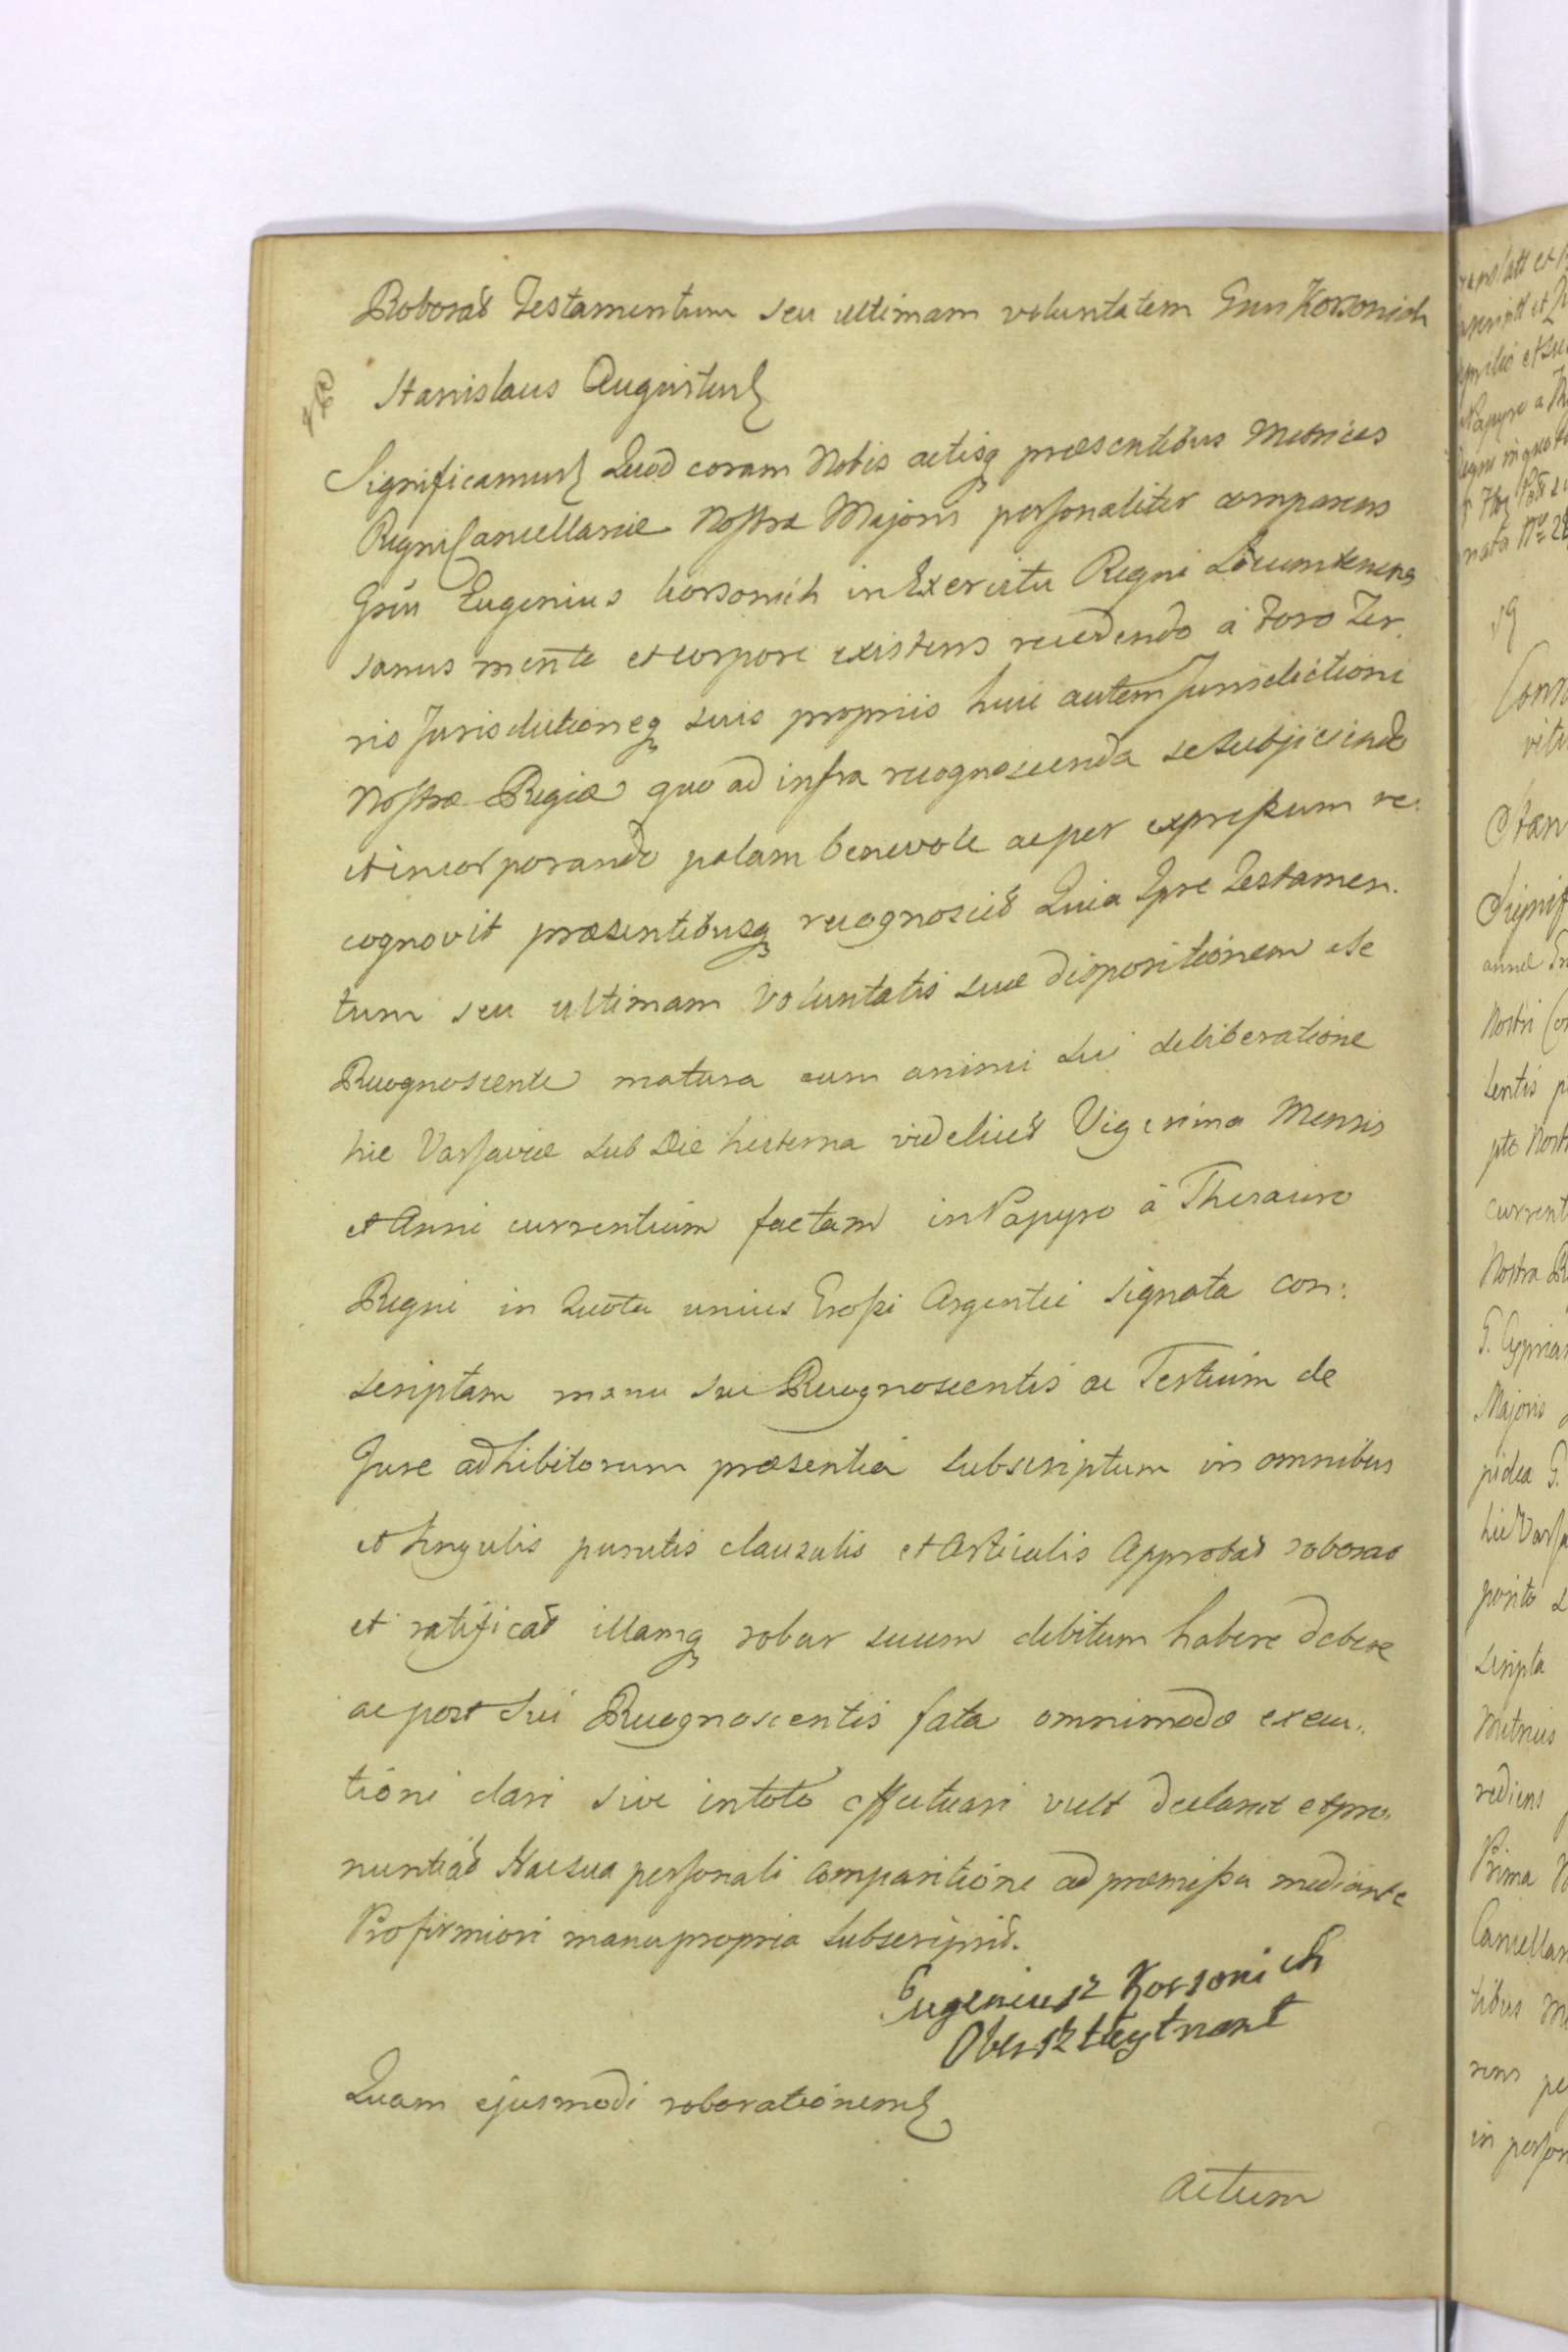 Roborat Testamentum seu ultimam voluntatem Gnri Korsonich
Stanislaus Augustus
Significamus Quod coram Nobis actisq praesentibus Metrices
Regni Cancellariae Nostrae Majoris personaliter comparens
Gnsus Eugenius Korsonich in Exercitu Regni Locumtenens
sanus mente et corpore existens recedendo à Foro Ter.
ris Jurisdictioneq suis propriis huic autem Jurisdictioni
Nostrae Regiae quo ad infra recognoscenda se subjiciendo
et incorporando palam benevole ac per expressum re.
cognovit praesentibusq recognoscit Quia Ipse Testamen.
tum seu ultimam Voluntatis suae dispositionem a se
Recognoscente matura cum animi sui deliberatione
hic Varsaviae sub Die hesterna videlicet Vigesima Mensis
et Anni currentium factam in Papyro à Thesauro
Regni in Quota unius Grossi Argentei signata con:
scriptam manu sui Recognoscentis ac Testium de
Jure adhibitorum praesentia subscriptum in omnibus
et singulis punctis clausulis et Articulis Approbat roborat
et ratificat illamq robur suum debitum habere debere
ac post sui Recognoscentis fata omnimodo execu.
tioni dari sive in toto effectuari vult declarat et pro.
nuntiat Hac sua personali comparitione ad praemissa mediante
Pro firmiori manu propria subscripsit.
Eugeniusz Korsonich
Obersztleytnant
Quam ejusmodi roborationem
Actum
19
Stan
Signif
Nostri
current
Nostra
Majoris
scripta
Prima
in person